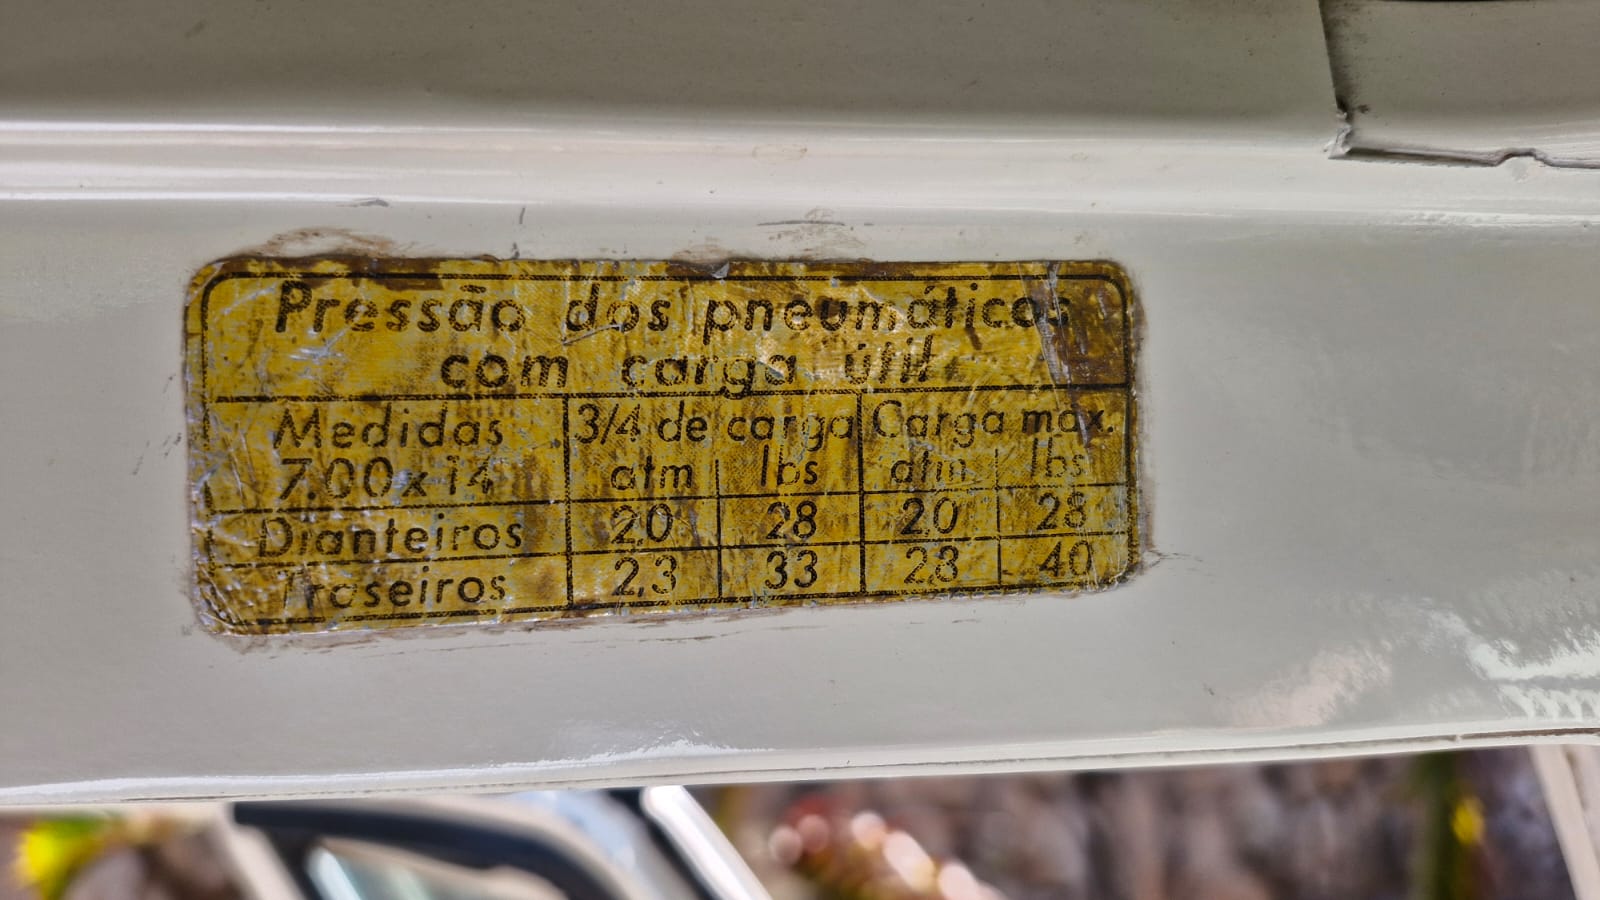 Pressão dos pneumáticos
com carga útil
Medidas 3/4 de carga Carga máx.
7.00x14 atm lbs atm lbs
Dianteiros 2,0 28 2,0 28
Traseiros 2,3 33 2,8 40